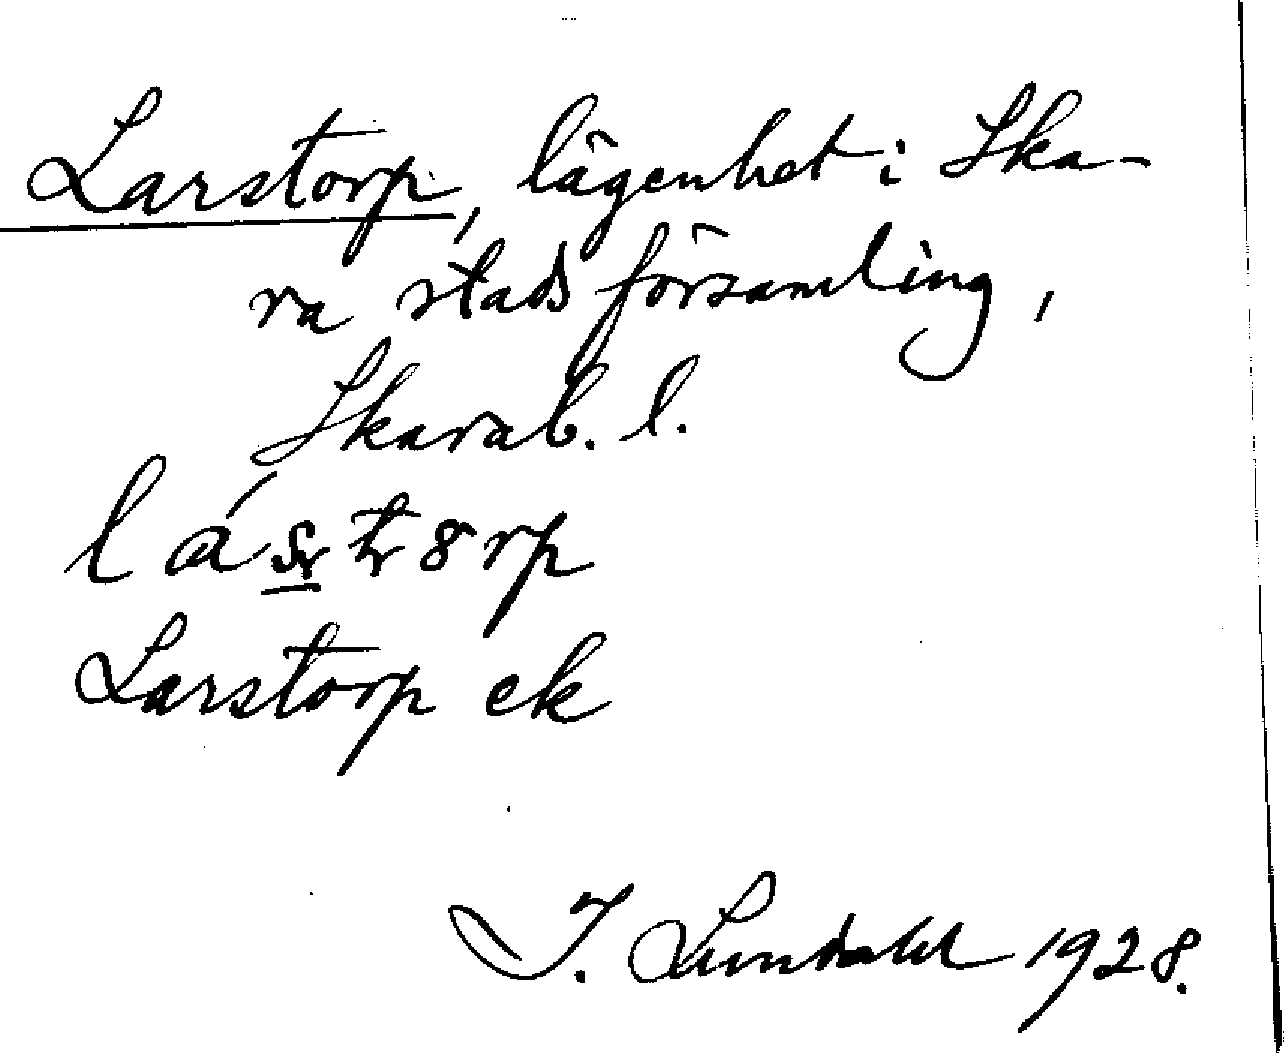 Larstorp, lägenhet i Ska-
ra stads församling,
Skarab. l.
Larstorp ek
I. Lundahl 1928.